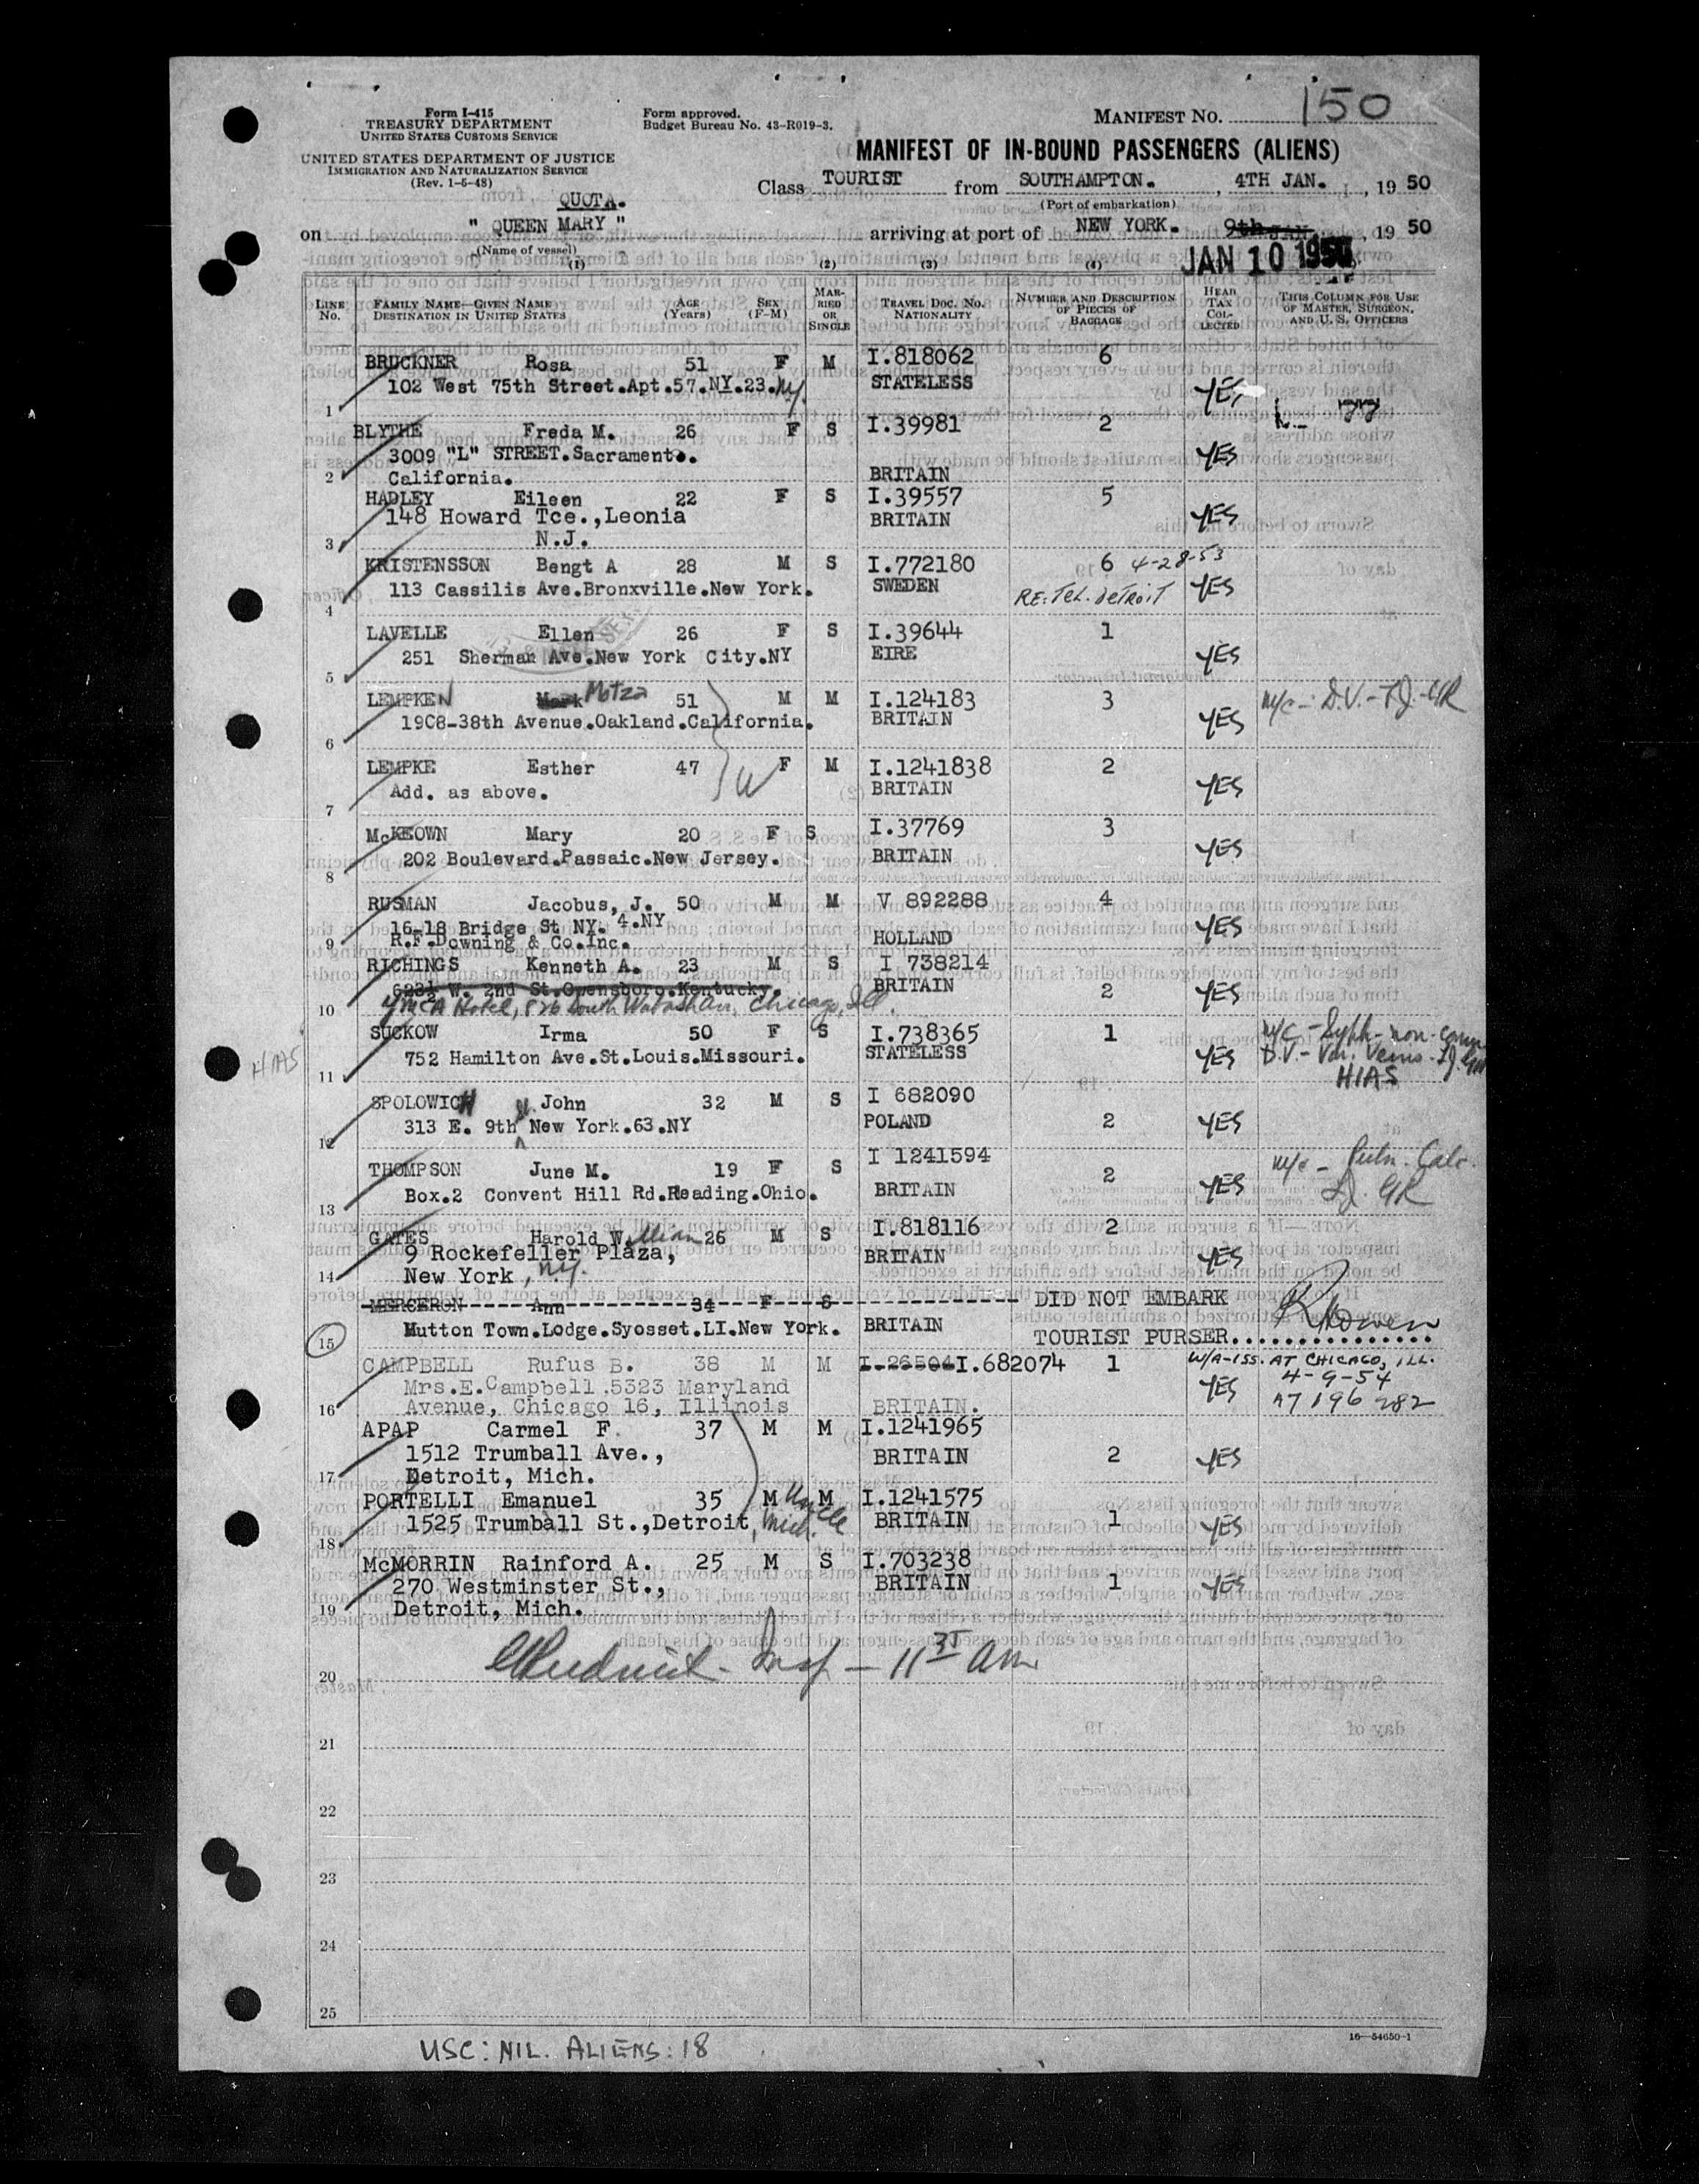 Form I-415
TREASURY DEPARTMENT
UNITED STATES CUSTOMS SERVICE
UNITED STATES DEPARTMENT OF JUSTICE
IMMIGRATION AND NATURALIZATION SERVICE
(Rev. 1-5-48)
Form approved.
Budget Bureau No. 43-R019-3.
MANIFEST NO. 150
MANIFEST OF IN-BOUND PASSENGERS (ALIENS)
Class TOURIST from SOUTHAMPTON. , 4TH JAN. , 19 50
(Port of embarkation)
QUOTA.
on " QUEEN MARY " arriving at port of NEW YORK. 9th JAN. , 19 50
(Name of vessel)
JAN 10 1950
(1) (2) (3) (4)
LINE No. FAMILY NAME—GIVEN NAME DESTINATION IN UNITED STATES AGE (Years) SEX (F-M) MARRIED OR SINGLE TRAVEL DOC. NO. NATIONALITY NUMBER AND DESCRIPTION OF PIECES OF BAGGAGE HEAD TAX COLLECTED THIS COLUMN FOR USE OF MASTER, SURGEON, AND U. S. OFFICERS
BRUCKNER Rosa 51 F M I.818062 6
102 West 75th Street.Apt.57.NY.23.NY. STATELESS YES
1
BLYTHE Freda M. 26 F S I.39981 2
3009 "L" STREET.Sacramento. YES
2 California. BRITAIN
HADLEY Eileen 22 F S I.39557 5
148 Howard Tce.,Leonia BRITAIN YES
3 N.J.
KRISTENSSON Bengt A 28 M S I.772180 6 4-28-53
113 Cassilis Ave.Bronxville.New York. SWEDEN RE: TEL. DETROIT YES
4
LAVELLE Ellen 26 F S I.39644 1
251 Sherman Ave.New York City.NY EIRE YES
5
LEMPKEN Mark Motza 51 M M I.124183 3 M/C - D.V. - FJ. GR
1908-38th Avenue.Oakland.California. BRITAIN YES
6
LEMPKE Esther 47 F M I.1241838 2
Add. as above. W BRITAIN YES
7
McKEOWN Mary 20 F S I.37769 3
202 Boulevard.Passaic.New Jersey. BRITAIN YES
8
RUSMAN Jacobus, J. 50 M M V 892288 4
16-18 Bridge St NY. 4.NY YES
9 R.F.Downing & Co.Inc. HOLLAND
RICHINGS Kenneth A. 23 M S I 738214
623½ W. 2nd St.Owensboro.Kentucky. BRITAIN 2 YES
10 YMCA Hotel, 826 South Wabash Av, Chicago, Ill.
SUCKOW Irma 50 F S I.738365 1 M/C - Syph- non-conv
752 Hamilton Ave.St.Louis.Missouri. STATELESS YES D.V. - Var. Veins
11 HIAS
HIAS
SPOLOWICH John 32 M S I 682090
313 E. 9th New York.63.NY POLAND 2 YES
12
THOMPSON June M. 19 F S I 1241594 M/C - Pulm. Calc.
Box.2 Convent Hill Rd.Reading.Ohio. BRITAIN 2 YES GR
13
GATES Harold William 26 M S I.818116 2
9 Rockefeller Plaza, BRITAIN YES
14 New York, N.Y.
MERCERON Ann 34 F S DID NOT EMBARK
Mutton Town.Lodge.Syosset.LI.New York. BRITAIN TOURIST PURSER...............
15
CAMPBELL Rufus B. 38 M M I.26504 I.682074 1 W/A-ISS. AT CHICAGO, ILL.
Mrs.E.Campbell.5323 Maryland YES 4-9-54
16 Avenue, Chicago 16, Illinois BRITAIN. A7 196 282
APAP Carmel F. 37 M M I.1241965
1512 Trumball Ave., BRITAIN 2 YES
17 Detroit, Mich.
PORTELLI Emanuel 35 M Uncle M I.1241575
1525 Trumball St.,Detroit, Mich. BRITAIN 1 YES
18
McMORRIN Rainford A. 25 M S I.703238
270 Westminster St., BRITAIN 1 YES
19 Detroit, Mich.
20 Insp - 11 35 am
21
22
23
24
25
16—54650-1
USC: NIL. ALIENS: 18